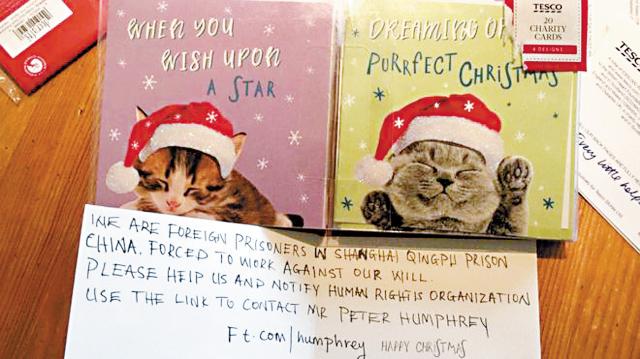 WHEN YOU
WISH UPON
A STAR
DREAMING OF
PURRFECT CHRISTMAS
TESCO
20
CHARITY
CARDS
4 DESIGNS
TESCO
Every little helps
WE ARE FOREIGN PRISONERS IN SHANGHAI QINGPU PRISON
CHINA. FORCED TO WORK AGAINST OUR WILL.
PLEASE HELP US AND NOTIFY HUMAN RIGHTS ORGANIZATION
USE THE LINK TO CONTACT MR PETER HUMPHREY
Ft.com/humphrey HAPPY CHRISTMAS